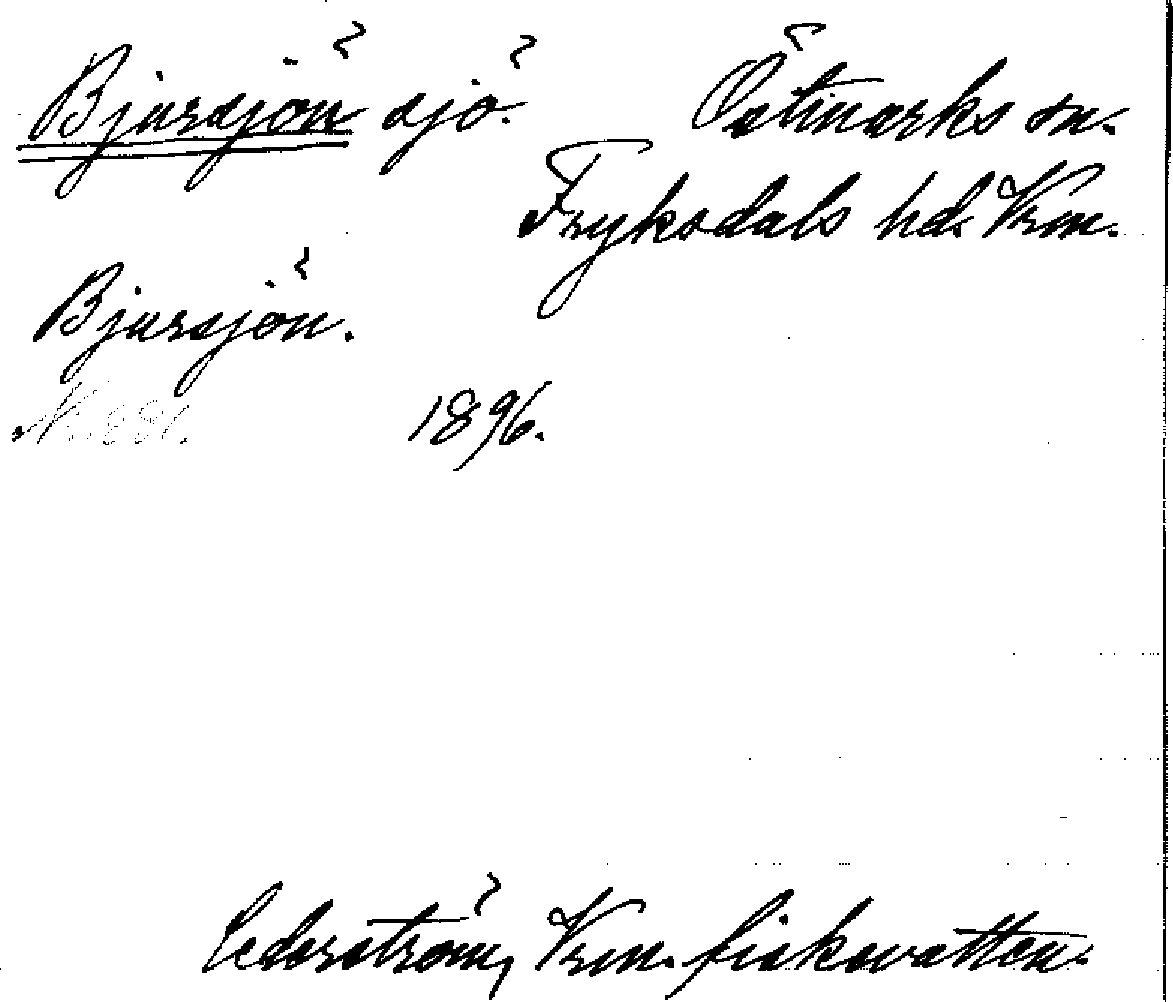 Bjursjön sjö. Östmarks sn.
Fryksdals hd. Vrm.
Bjursjön.
1896.
Cederström, Vrm. fiskevatten.